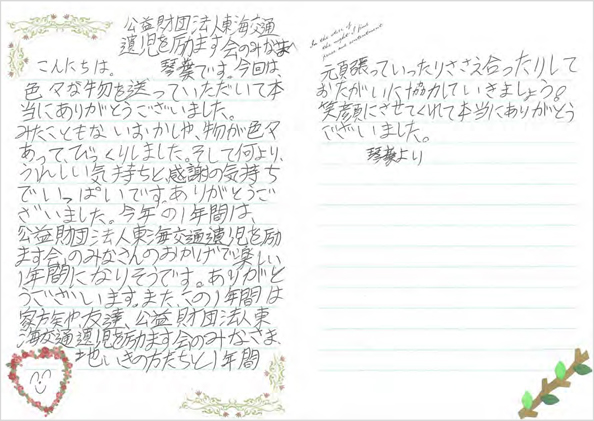 公益財団法人東海交通
遺児を励ます会のみなさまへ
こんにちは。 琴葵です。今回は、
色々な物を送っていただいて本
当にありがとうございました。
みたこともないおかしや、物が色々
あって、びっくりしました。そして何より、
うれしい気持ちと、感謝の気持ち
でいっぱいです。ありがとうご
ざいました。今年の1年間は、
公益財団法人東海交通遺児を励
ます会、のみなさんのおかげで楽しい
1年間になりそうです。ありがと
うございます。また、この1年間は
家族や、友達、公益財団法人東
海交通遺児を励ます会のみなさま
地いきの方たちと1年間
In the stars of
the night I find
peace and contentment
元頁張っていったりささえ合ったりして
おたがいに協力していきましょう!
笑顔にさせてくれて本当にありがとう
ございました。
琴葵より